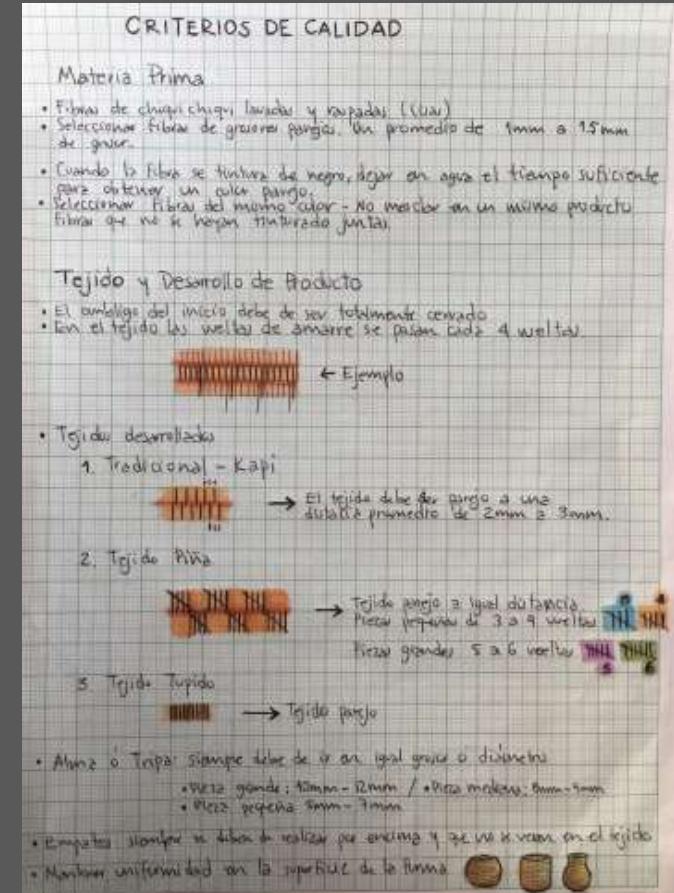 CRITERIOS DE CALIDAD
Materia Prima
• Fibras de chiqui chiqui lavadas y raspadas
• Seleccionar fibras de grosores parejos. Un promedio de 1mm a 1.5mm
de grosor.
• Cuando la fibra se tintura de negro, dejar en agua el tiempo suficiente
para obtener un color parejo.
• Seleccionar fibras del mismo color - No mezclar en un mismo producto
fibras que no se hayan tinturado juntas.
Tejido y Desarrollo de Producto
• El ombligo del inicio debe de ser totalmente cerrado
• En el tejido las vueltas de amarre se pasan cada 4 vueltas.
← Ejemplo
• Tejidos desarrollados
1. Tradicional - Kapi
→ El tejido debe ser parejo a una
distancia promedio de 2mm a 3mm.
2. Tejido Piña
→ Tejido parejo a igual distancia
Piezas pequeñas de 3 a 4 vueltas
Piezas grandes 5 a 6 vueltas
5 6
3 Tejido Tupido
→ Tejido parejo
• Alma ó Tripa: siempre debe de ir en igual grosor o diámetro
• Pieza grande: 10mm - 12mm / • Pieza mediana: 8mm - 9mm
• Pieza pequeña 5mm - 7mm
• Empates siempre se deben de realizar por encima y que no se vean en el tejido
• Mantener uniformidad en la superficie de la forma